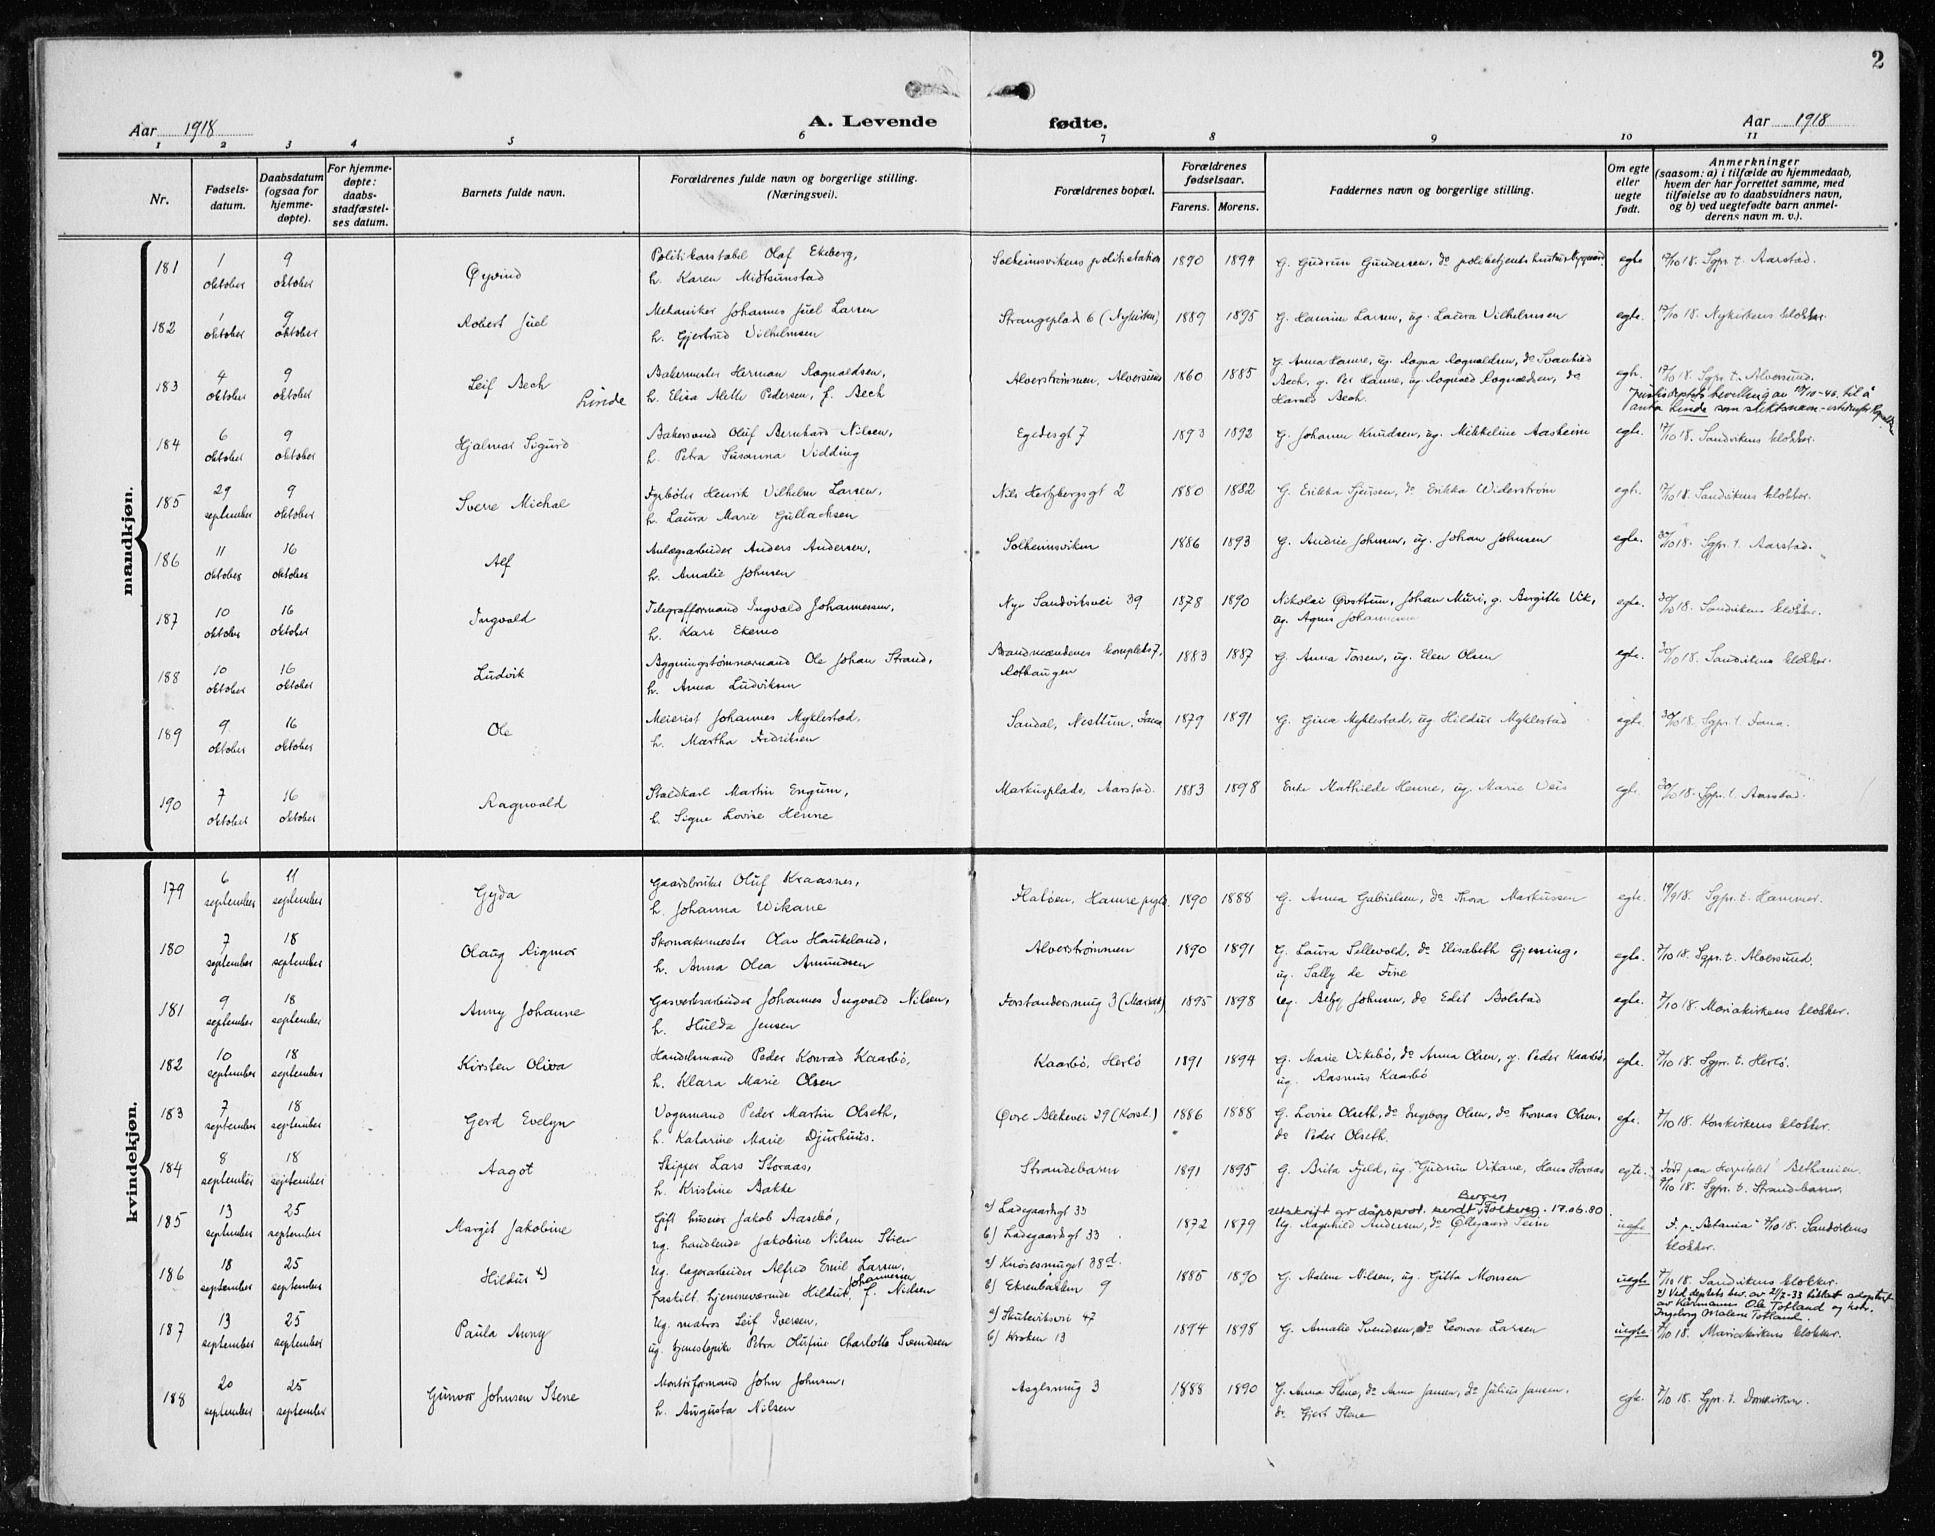 2
Aar 1918
A. Levende fødte.
Aar 1918
1 2 3 4 5 6 7 8 9 10 11
Nr.
Fødsels-
datum.
Daabsdatum
(ogsaa for
hjemme-
døpte).
For hjemme-
døpte:
daabs-
stadfæstel-
ses datum.
Barnets fulde navn.
Forældrenes fulde navn og borgerlige stilling.
(Næringsvei).
Forældrenes bopæl.
Forældrenes
fødselsaar.
Farens. Morens.
Faddernes navn og borgerlige stilling.
Om egte
eller
uegte
født.
Anmerkninger
(saasom: a) i tilfælde av hjemmedaab,
hvem der har forrettet samme, med
tilføielse av to daabsvidners navn,
og b) ved uegtefødte barn anmel-
derens navn m. v.).
mandkjøn.
181 1 oktober 9 oktober Øyvind
Politikonstabel Olaf Ekeberg,
h. Karen Midtsunstad
Solheimsvikens politistation 1890 1894
G. Gudrun Gundersen, do politibetjents hustru egte 17/10 18. Sgpr. t. Aarstad.
182 1 oktober 9 oktober Robert Juel
Mekaniker Johannes Juel Larsen
h. Gjertrud Vilhelmsen
Strangeplads 6 (Nykirken) 1889 1895
G. Larsen, ug. Laura Vilhelmsen egte. 17/10 18. Nykirkens klokker.
183 4 oktober 9 oktober Leif Bech Linde
Bakermester Herman Ragnvaldsen,
h. Elisa Alette Pedersen, f. Bech
Alverstrømmen, Alversund 1860 1885
G. Anna Hamre, ug. Ragna Ragnvaldsen, do Svanhild
Bech, g. Per Hamre, ug. Ragnvald Ragnvaldsen, do
Harald Bech.
egte. 17/10 18. Sgpr. t. Alversund.
Justisdeptets bevilling av 10-45 til å
anta Linde som slektsnavn
184 6 oktober 9 oktober Hjalmar Sigurd
Bakersvend Oluf Bernhard Nilsen,
h. Petra Susanna Vidding
Egedesgt 7 1893 1892
G. Johanne Knudsen, ug. Mikkeline Aasheim egte. 17/10 18. Sandvikens klokker.
185 29 september 9 oktober Sverre Michal
Fyrbøter Henrik Vilhelm Larsen,
h. Laura Marie Gullachsen
Nils Hertzbergsgt 2 1880 1882
G. Erikka Sjursen, do Erikka Widerstrøm egte. 17/10 18. Sandvikens klokker.
186 11 oktober 16 oktober Alf
Anlægsarbeider Anders Andersen,
h. Amalie Johnsen
Solheimsviken 1886 1893
G. Andrie Johnsen, ug. Johan Johnsen egte. 30/10 18. Sgpr. t. Aarstad.
187 10 oktober 16 oktober Ingvald
Telegrafformand Ingvald Johannessen,
h. Kari Ekemo
Nye Sandviksvei 39 1878 1890
Nikolai Øvsttun, Johan Muri, g. Bergitte Vik,
ug. Agnes Johannesen
egte. 30/10 18. Sandvikens klokker.
188 10 oktober 16 oktober Ludvik
Bygningstømmermand Ole Johan Strand,
h. Anna Ludviksen
Brandmændenes kompleks 7,
Rothaugen
1883 1887
G. Anna Torsen, ug. Elen Olsen egte. 30/10 18. Sandvikens klokker.
189 9 oktober 16 oktober Ole
Meierist Johannes Myklestad,
h. Martha Fredriksen
Sandal, Nesttun, Fana 1879 1891
G. Gina Myklestad, ug Hildur Myklestad egte. 30/10 18. Sgpr. t. Fana.
190 7 oktober 16 oktober Ragnvald
Staldkarl Martin Engum,
h. Signe Lovise Henne
Markusplads, Aarstad. 1883 1898
Enke Mathilde Henne, ug. Marie Veis egte. 30/10 18. Sgpr. t. Aarstad.
kvindekjøn.
179 6 september 11 september Gyda
Gaardbruker Oluf Kraasnes,
h. Johanna Wikane
Fatøen, Hamre pgld. 1890 1888
G. Anna Gabrielsen, do Thora Markussen egte. 19/9 18. Sgpr. t. Hammer.
180 7 september 18 september Olaug Rigmor
Skomakermester Olav Haukeland,
h. Anna Olea Amundsen
Alverstrømmen 1890 1891
G. Laura Sellevold, do Elisabeth Gjessing,
ug. Sally de Fine
egte. 7/10 18. Sgpr. t. Alversund.
181 9 september 18 september Anny Johanne
Gasverksarbeider Johannes Ingvald Nilsen,
h. Hulda Jensen
Forstandersmug 3 (Mariak) 1895 1898
ug. Johnsen, do Edit Bolstad egte. 7/10 18. Mariakirkens klokker.
182 10 september 18 september Kirsten Oliva
Handelsmand Peder Konrad Kaarbø,
h. Klara Marie Olsen
Kaarbø, Herlø 1891 1894
G. Marie Vikebø, do Anna Olsen, g. Peder Kaarbø,
ug. Rasmus Kaarbø
egte. 7/10 18. Sgpr. t. Herlø.
183 7 september 18 september Gerd Evelyn
Vognmand Peder Martin Olseth,
h. Katarine Marie Djurhuus.
Øvre Blekevei 29 (Korsk.) 1886 1888
G. Lovise Olseth, do Ingeborg Olsen, do Thomas Olsen,
do Peder Olseth.
egte. 7/10 18. Korskirkens klokker.
184 8 september 18 september Aagot
Skipper Lars Storaas,
h. Kristine Bakke
Strandebarm 1891 1895
G. Brita Fjeld, ug. Gudrun Vikane, Hans Storaas egte.
Fød paa Hospitalet Bethanien.
7/10 18. Sgpr. t. Strandebarm.
185 13 september 25 september Margit Jakobine
Gift huseier Jakob Aasebø,
ug. handlende Jakobine Nilsen Stien
a) Ladegaardsgt 33
b) Ladegaardsgt 33
1872 1879
Bergen
Utskrift av dåpsprot. sendt Folkereg. 17.06.80
Ug. Ragnhild Andersen, do Øllegaard Seim
uegte
F. p. "Betania" 7/10 18. Sandvikens
klokker.
186 18 september 25 september Hildur x)
Ug. lagerarbeider Alfred Emil Larsen,
fraskilt hjemmeværende Hildur Johannessen f. Nielsen
a) Knøsesmuget 38d.
b) Ekrenbakken 9
1885 1890
G. Malene Nilsen, ug. Gitta Monsen uegte
7/10 18. Sandvikens klokker.
x) Ved deptets bev. av 21/2-33 tillatt adoptert
av Ole Totland og hustr.
Ingeborg Malene Totland.
187 13 september 25 september Paula Anny
Ug. matros Leif Iversen,
ug. tjenestepike Petra Olufine Charlotte Svendsen
a) Skuteviksvei 47
b) Kroken 13
1894 1898
G. Amalie Svendsen, do Leonore Larsen uegte 7/10 18. Mariakirkens klokker.
188 20 september 25 september Gunvor Johnsen Stene
Montørformand John Johnsen,
h. Augusta Nilsen
Asylsmug 3 1888 1890
G. Anna Stene, do Anna Jansen, do Julius Jansen,
do Gjert Stene
egte. 7/10 18. Sgpr. t. Domkirken.